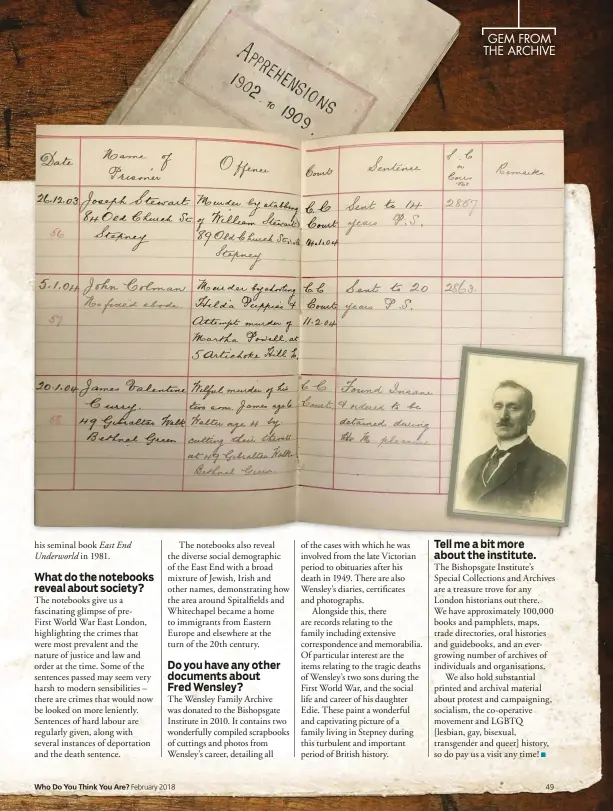 GEM FROM
THE ARCHIVE
APPREHENSIONS
1902. to 1909.
Date
Name of
Prisoner
Offence
Court
Sentence
S. C
or
Remarks
26.12.03
Joseph Stewart
84 Old Church St
Stepney
56
Murder by stabbing
of William Stewart
89 Old Church St
Stepney
C. C
Court
14.1.04
Sent to 14
years P.S.
2867
5.1.04
John Colman
No fixed abode
57
Murder by shooting
Hilda Puppies &
Attempt murder of
Martha Powell at
5 Artichoke Hill E.
C C
Court
11.2.04
Sent to 20
years P.S.
2863
20.1.04
James Valentine
Curry.
49 Gibraltar Walk
Bethnal Green
58
Wilful murder of his
two sons. James age 6
Walter age 4 by
cutting their throats
at 49 Gibraltar Walk
Bethnal Green
C C
Court
Found Insane
& ordered to be
detained during
His M pleasure
his seminal book East End
Underworld in 1981.
What do the notebooks
reveal about society?
The notebooks give us a
fascinating glimpse of pre-
First World War East London,
highlighting the crimes that
were most prevalent and the
nature of justice and law and
order at the time. Some of the
sentences passed may seem very
harsh to modern sensibilities –
there are crimes that would now
be looked on more leniently.
Sentences of hard labour are
regularly given, along with
several instances of deportation
and the death sentence.
The notebooks also reveal
the diverse social demographic
of the East End with a broad
mixture of Jewish, Irish and
other names, demonstrating how
the area around Spitalfields and
Whitechapel became a home
to immigrants from Eastern
Europe and elsewhere at the
turn of the 20th century.
Do you have any other
documents about
Fred Wensley?
The Wensley Family Archive
was donated to the Bishopsgate
Institute in 2010. It contains two
wonderfully compiled scrapbooks
of cuttings and photos from
Wensley's career, detailing all
of the cases with which he was
involved from the late Victorian
period to obituaries after his
death in 1949. There are also
Wensley's diaries, certificates
and photographs.
Alongside this, there
are records relating to the
family including extensive
correspondence and memorabilia.
Of particular interest are the
items relating to the tragic deaths
of Wensley's two sons during the
First World War, and the social
life and career of his daughter
Edie. These paint a wonderful
and captivating picture of a
family living in Stepney during
this turbulent and important
period of British history.
Tell me a bit more
about the institute.
The Bishopsgate Institute's
Special Collections and Archives
are a treasure trove for any
London historians out there.
We have approximately 100,000
books and pamphlets, maps,
trade directories, oral histories
and guidebooks, and an ever-
growing number of archives of
individuals and organisations.
We also hold substantial
printed and archival material
about protest and campaigning,
socialism, the co-operative
movement and LGBTQ
[lesbian, gay, bisexual,
transgender and queer] history,
so do pay us a visit any time!
Who Do You Think You Are? February 2018
49